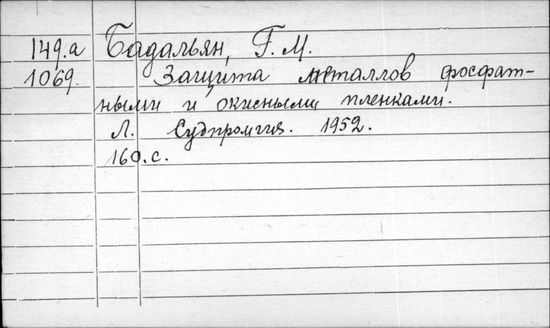 149.а Бадальян, Г. М.
1069. Защита металлов фосфат-
ными и окисными пленками.
Л. Судпромгиз. 1952.
160.с.